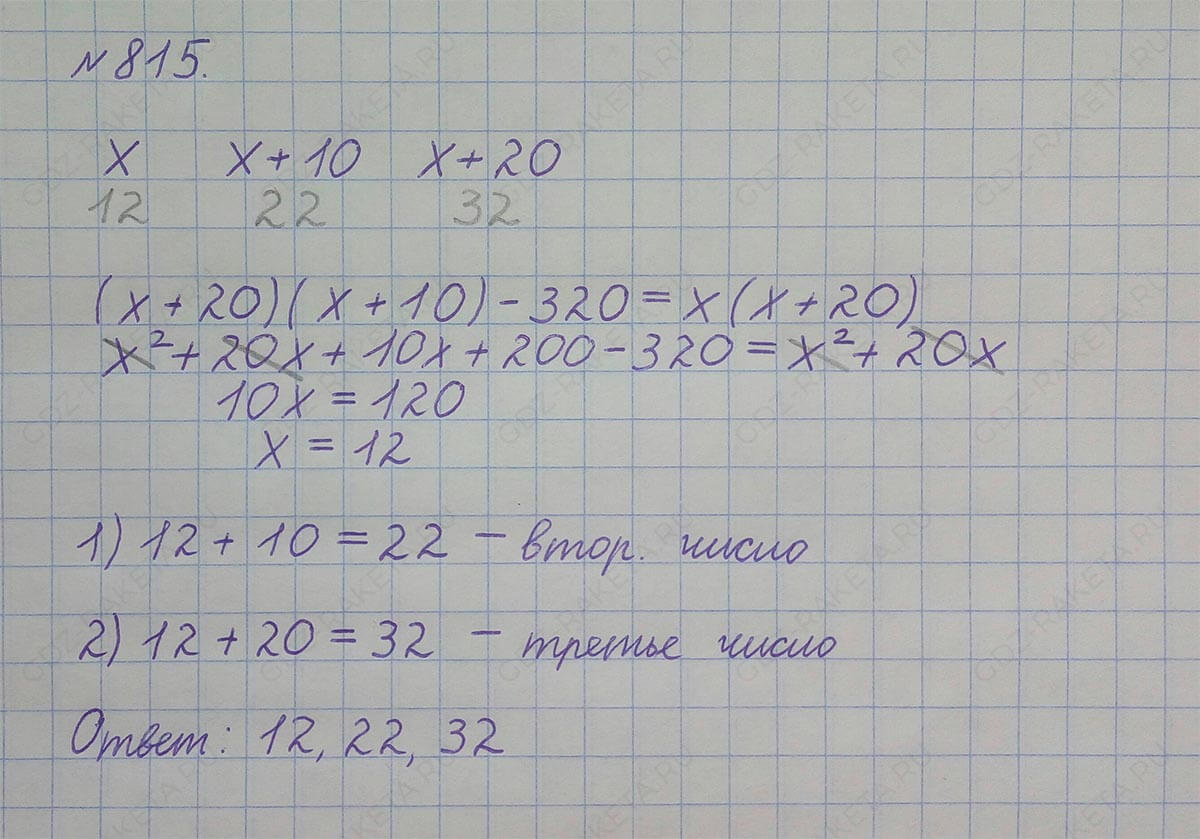 №815.
x x+10 x+20
12 22 32
(x+20)(x+10)-320=x(x+20)
x²+20x+10x+200-320=x²+20x
10x=120
x=12
1) 12+10=22 - втор. число
2) 12+20=32 - третье число
Ответ: 12, 22, 32
GDZ-RAKETA.RU